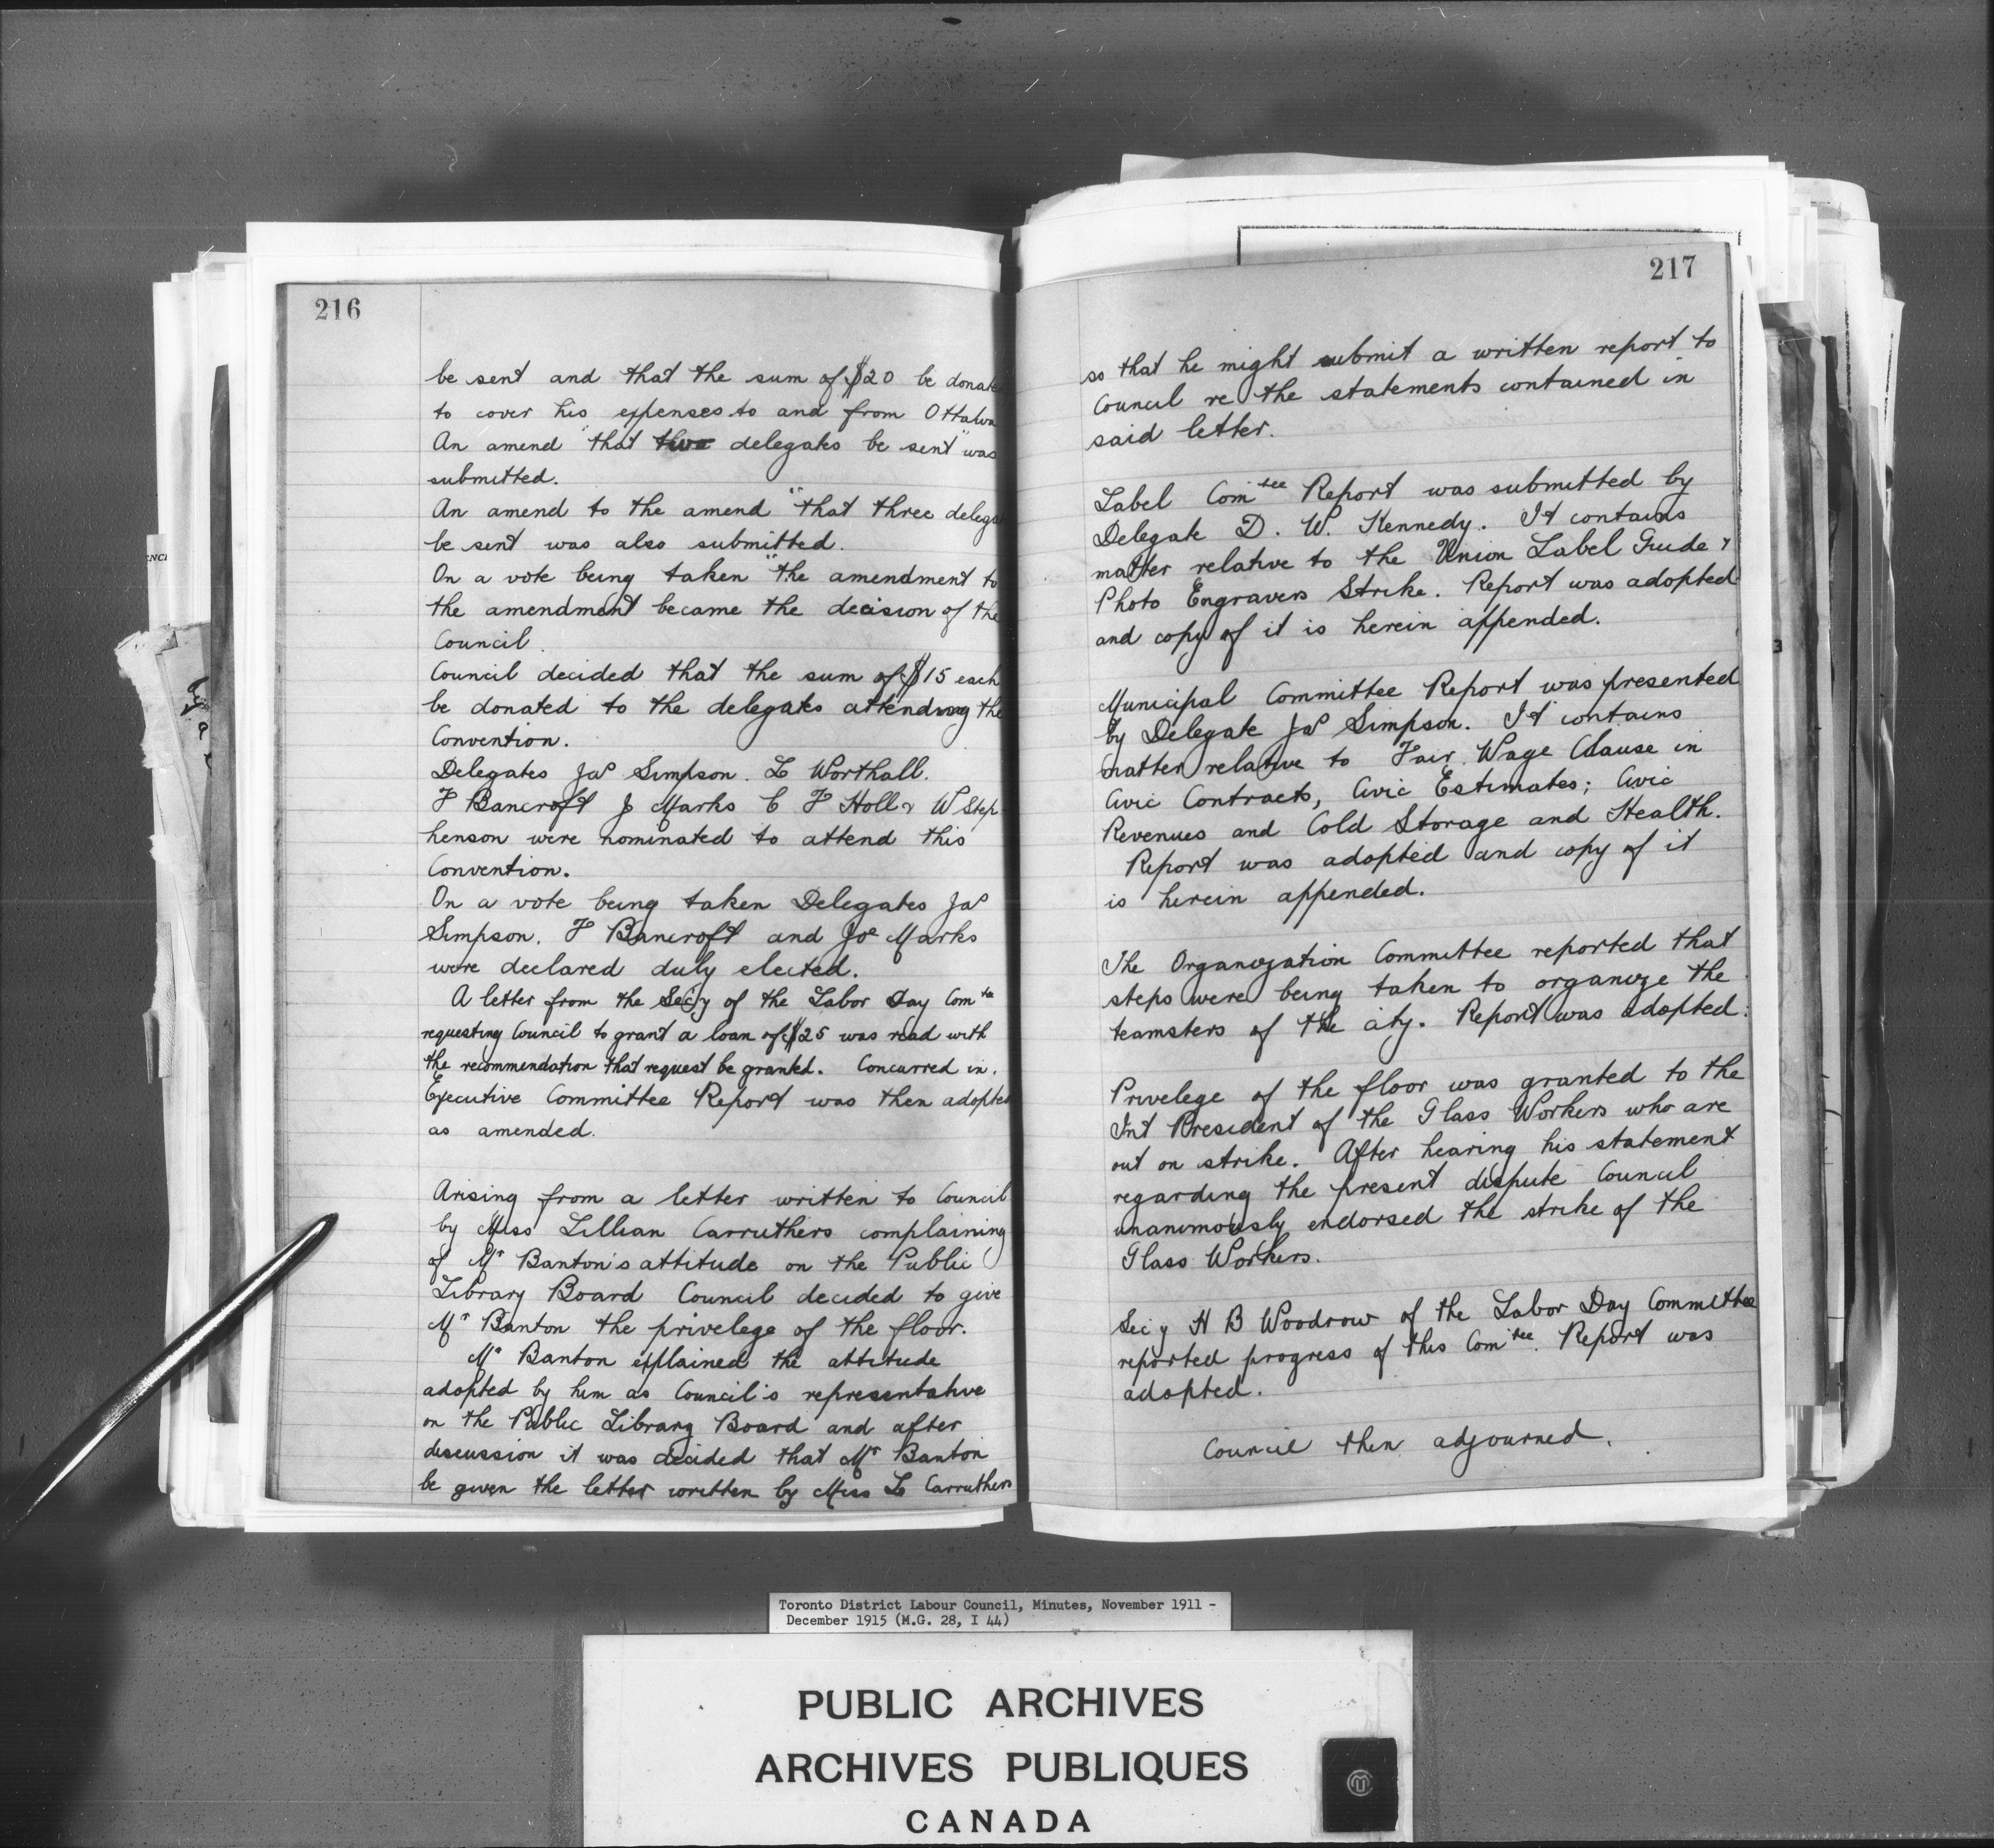 216
be sent and that the sum of $20 be donate
to cover his expenses to and from Ottawa
An amend "that two delegates be sent" was
submitted.
An amend to the amend "that three delega
be sent was also submitted.
On a vote being taken "the amendment to
the amendment became the decision of the
Council.
Council decided that the sum of $15 each
be donated to the delegates attending the
Convention.
Delegates Jas Simpson. L Worthall.
F Bancroft J Marks C F Holl & W Step
henson were nominated to attend this
Convention.
On a vote being taken Delegates Jas
Simpson. F Bancroft and Jos Marks
were declared duly elected.
A letter from the Secy of the Labor Day Comtee
requesting Council to grant a loan of $25 was read with
the recommendation that request be granted. Concurred in.
Executive Committee Report was then adopted
as amended.
Arising from a letter written to Council
by Miss Lillian Carruthers complaining
of Mr Banton's attitude on the Public
Library Board Council decided to give
Mr Banton the privelege of the floor.
Mr Banton explained the attitude
adopted by him as Council's representative
on the Public Library Board and after
discussion it was decided that Mr Banton
be given the letter written by Miss L Carruthers
217
so that he might submit a written report to
Council re the statements contained in
said letter.
Label Comtee Report was submitted by
Delegate D. W. Kennedy. It contains
matter relative to the Union Label Guide &
Photo Engravers Strike. Report was adopted
and copy of it is herein appended.
Municipal Committee Report was presented
by Delegate Jas Simpson. It contains
matter relative to Fair Wage Clause in
Civic Contracts, Civic Estimates; Civic
Revenues and Cold Storage and Health.
Report was adopted and copy of it
is herein appended.
The Organization Committee reported that
steps were being taken to organize the
teamsters of the city. Report was adopted.
Privelege of the floor was granted to the
Int President of the Glass Workers who are
out on strike. After hearing his statement
regarding the present dispute Council
unanimously endorsed the strike of the
Glass Workers.
Secy H B Woodrow of the Labor Day Committee
reported progress of this Comtee. Report was
adopted.
Council then adjourned.
Toronto District Labour Council, Minutes, November 1911 -
December 1915 (M.G. 28, I 44)
PUBLIC ARCHIVES
ARCHIVES PUBLIQUES
CANADA